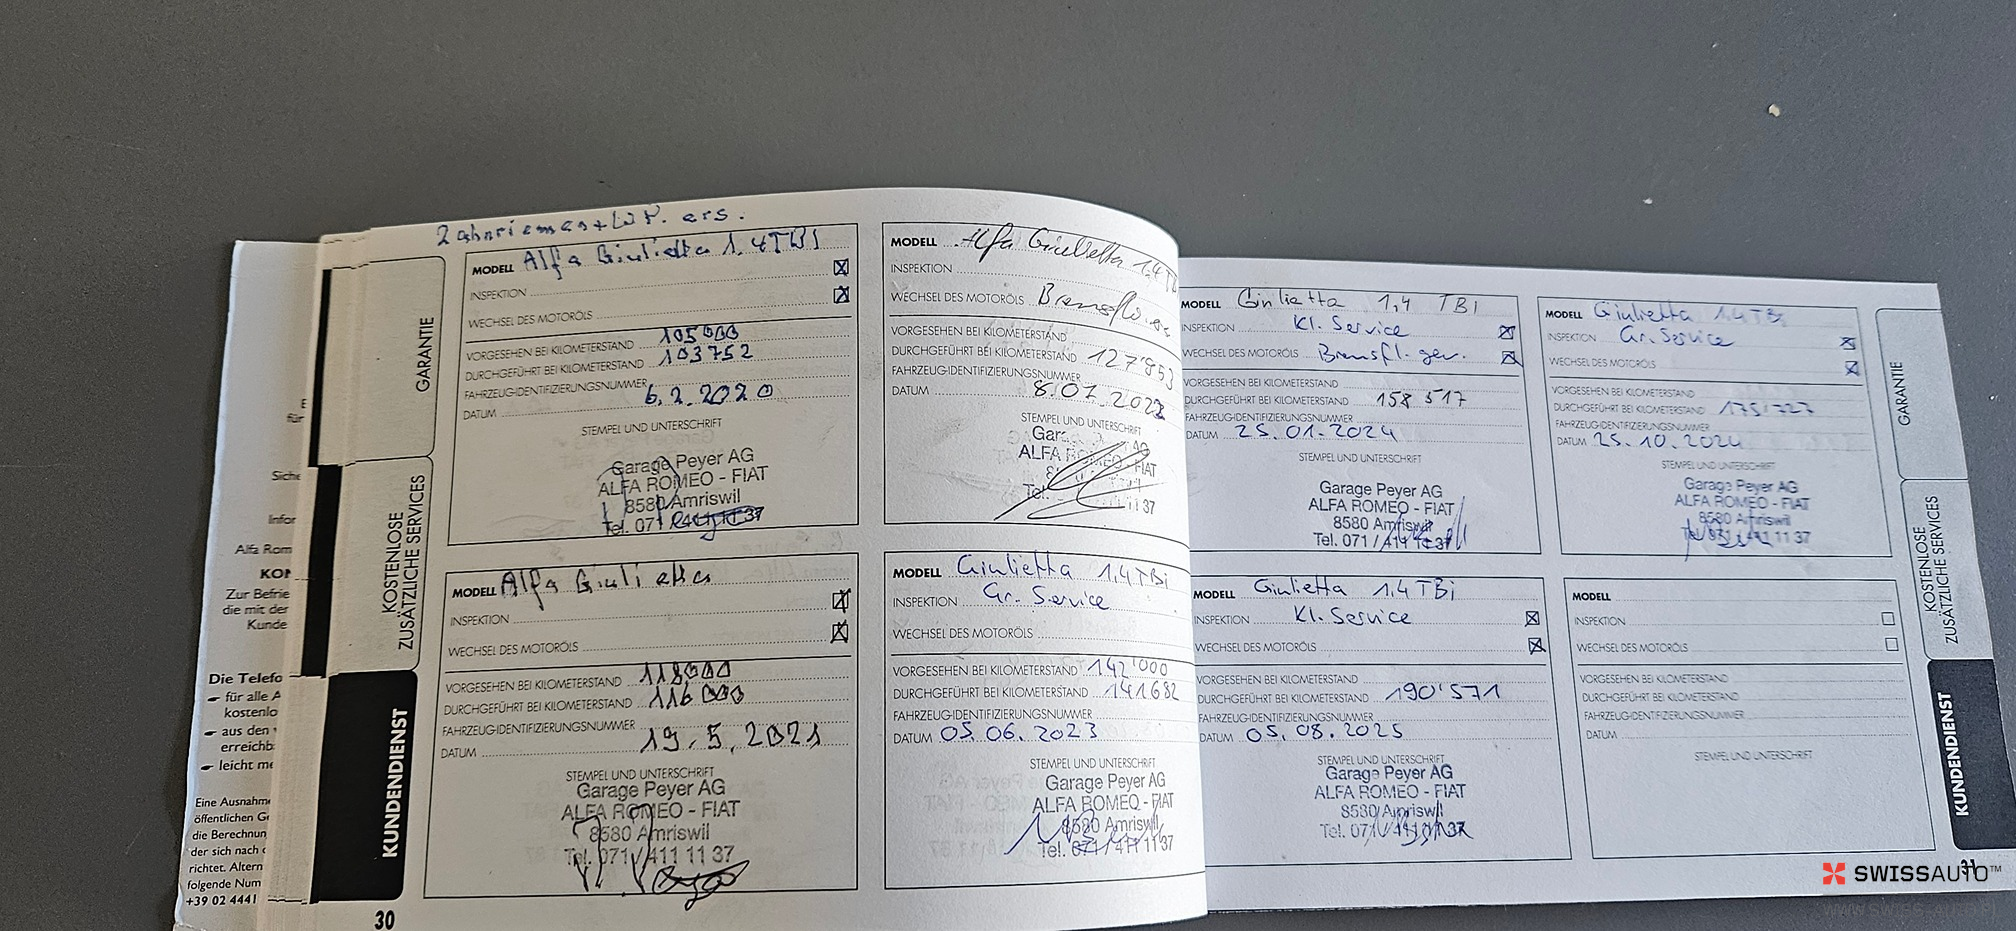 Zahnriemen + W.P. ers.
MODELL Alfa Giulietta 1,4 TBI
INSPEKTION
WECHSEL DES MOTORÖLS
VORGESEHEN BEI KILOMETERSTAND 105000
DURCHGEFÜHRT BEI KILOMETERSTAND 103752
FAHRZEUG-IDENTIFIZIERUNGSNUMMER
DATUM 6.2.2020
STEMPEL UND UNTERSCHRIFT
Garage Peyer AG
ALFA ROMEO - FIAT
8580 Amriswil
Tel. 071 / 411 11 37
MODELL Alfa Giulietta
INSPEKTION
WECHSEL DES MOTORÖLS
VORGESEHEN BEI KILOMETERSTAND 118000
DURCHGEFÜHRT BEI KILOMETERSTAND 116000
FAHRZEUG-IDENTIFIZIERUNGSNUMMER
DATUM 19.5.2021
STEMPEL UND UNTERSCHRIFT
Garage Peyer AG
ALFA ROMEO - FIAT
8580 Amriswil
Tel. 071 / 411 11 37
MODELL Alfa Giulietta 1,4 TB
INSPEKTION
WECHSEL DES MOTORÖLS
VORGESEHEN BEI KILOMETERSTAND
DURCHGEFÜHRT BEI KILOMETERSTAND 127'853
FAHRZEUG-IDENTIFIZIERUNGSNUMMER
DATUM
STEMPEL UND UNTERSCHRIFT
AG
ALFA ROMEO - FIAT
Tel. 11 37
MODELL Giulietta 1,4 TBi
INSPEKTION Gr. Service
WECHSEL DES MOTORÖLS
VORGESEHEN BEI KILOMETERSTAND 142'000
DURCHGEFÜHRT BEI KILOMETERSTAND 141682
FAHRZEUG-IDENTIFIZIERUNGSNUMMER
DATUM 05.06.2023
STEMPEL UND UNTERSCHRIFT
Garage Peyer AG
ALFA ROMEO - FIAT
8580 Amriswil
Tel. 071 / 411 11 37
MODELL Giulietta 1,4 TBi
INSPEKTION Kl. Service
WECHSEL DES MOTORÖLS Bremsfl. gew.
VORGESEHEN BEI KILOMETERSTAND
DURCHGEFÜHRT BEI KILOMETERSTAND 158 517
FAHRZEUG-IDENTIFIZIERUNGSNUMMER
DATUM 25.01.2024
STEMPEL UND UNTERSCHRIFT
Garage Peyer AG
ALFA ROMEO - FIAT
8580 Amriswil
Tel. 071 / 411 11 37
MODELL Giulietta 1,4 TBi
INSPEKTION Kl. Service
WECHSEL DES MOTORÖLS
VORGESEHEN BEI KILOMETERSTAND
DURCHGEFÜHRT BEI KILOMETERSTAND 190'571
FAHRZEUG-IDENTIFIZIERUNGSNUMMER
DATUM 05.08.2025
STEMPEL UND UNTERSCHRIFT
Garage Peyer AG
ALFA ROMEO - FIAT
8580 Amriswil
Tel. 071 / 411 11 37
MODELL Giulietta 1,4 TBi
INSPEKTION Gr. Service
WECHSEL DES MOTORÖLS
VORGESEHEN BEI KILOMETERSTAND
DURCHGEFÜHRT BEI KILOMETERSTAND 175'727
FAHRZEUG-IDENTIFIZIERUNGSNUMMER
DATUM 25.10.2024
STEMPEL UND UNTERSCHRIFT
Garage Peyer AG
ALFA ROMEO - FIAT
8580 Amriswil
11 37
MODELL
INSPEKTION
WECHSEL DES MOTORÖLS
VORGESEHEN BEI KILOMETERSTAND
DURCHGEFÜHRT BEI KILOMETERSTAND
FAHRZEUG-IDENTIFIZIERUNGSNUMMER
DATUM
STEMPEL UND UNTERSCHRIFT
GARANTIE
KOSTENLOSE
ZUSÄTZLICHE SERVICES
KUNDENDIENST
GARANTIE
KOSTENLOSE
ZUSÄTZLICHE SERVICES
KUNDENDIENST
für
Alfa Rom
Zur Befrie
die mit der
Kunde
Die Telefo
für alle A
kostenlo
aus den
leicht me
Eine Ausnahm
öffentlichen
die Berechnun
der sich nach
richtet. Altern
folgende Num
+39 02 4441
30
31
SWISSAUTO™